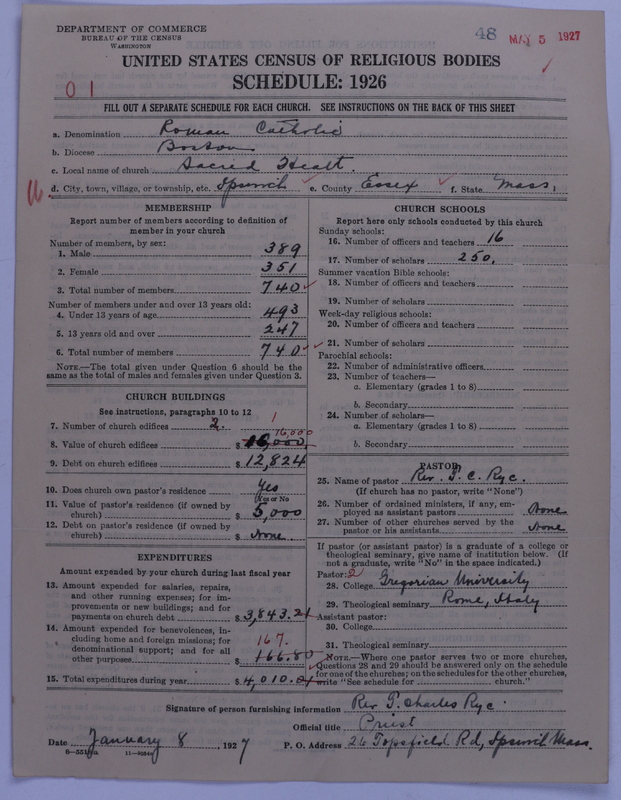 DEPARTMENT OF COMMERCE
BUREAU OF THE CENSUS
WASHINGTON
48 MAY 5 1927
UNITED STATES CENSUS OF RELIGIOUS BODIES
SCHEDULE: 1926
0 1
FILL OUT A SEPARATE SCHEDULE FOR EACH CHURCH. SEE INSTRUCTIONS ON THE BACK OF THIS SHEET
a. Denomination Roman Catholic
b. Diocese Boston
c. Local name of church Sacred Heart.
16 d. City, town, village, or township, etc. Ipswich e. County Essex f. State Mass.
MEMBERSHIP
Report number of members according to definition of member in your church
Number of members, by sex:
1. Male 389
2. Female 351
3. Total number of members 740
Number of members under and over 13 years old:
4. Under 13 years of age 493
5. 13 years old and over 247
6. Total number of members 740
NOTE.—The total given under Question 6 should be the
same as the total of males and females given under Question 3.
CHURCH BUILDINGS
See instructions, paragraphs 10 to 12
7. Number of church edifices 2. 1
16,000
8. Value of church edifices $ 16,000
9. Debt on church edifices $ 12,824
10. Does church own pastor's residence Yes
(Yes or No
11. Value of pastor's residence (if owned by
church) $ 5,000
12. Debt on pastor's residence (if owned by
church) $ None.
EXPENDITURES
Amount expended by your church during last fiscal year
13. Amount expended for salaries, repairs,
and other running expenses; for im-
provements or new buildings; and for
payments on church debt $ 3,843.21
14. Amount expended for benevolences, in-
cluding home and foreign missions; for
denominational support; and for all
other purposes $ 166.80
167.
15. Total expenditures during year $ 4,010.01
CHURCH SCHOOLS
Report here only schools conducted by this church
Sunday schools:
16. Number of officers and teachers 16
17. Number of scholars 250.
Summer vacation Bible schools:
18. Number of officers and teachers
19. Number of scholars
Week-day religious schools:
20. Number of officers and teachers
21. Number of scholars
Parochial schools:
22. Number of administrative officers
23. Number of teachers—
a. Elementary (grades 1 to 8)
b. Secondary
24. Number of scholars—
a. Elementary (grades 1 to 8)
b. Secondary
PASTOR
25. Name of pastor Rev. T. C. Ryc.
(If church has no pastor, write "None")
26. Number of ordained ministers, if any, em-
ployed as assistant pastors None
27. Number of other churches served by the
pastor or his assistants None
If pastor (or assistant pastor) is a graduate of a college or
theological seminary, give name of institution below. (If
not a graduate, write "No" in the space indicated.)
Pastor: 2
28. College Gregorian University
29. Theological seminary Rome, Italy
Assistant pastor:
30. College
31. Theological seminary
NOTE.—Where one pastor serves two or more churches,
Questions 28 and 29 should be answered only on the schedule
for one of the churches; on the schedules for the other churches,
write "See schedule for church."
Signature of person furnishing information Rev T. Charles Ryc.
Official title Priest
Date January 8, 1927 P. O. Address 26 Topsfield Rd, Ipswich Mass.